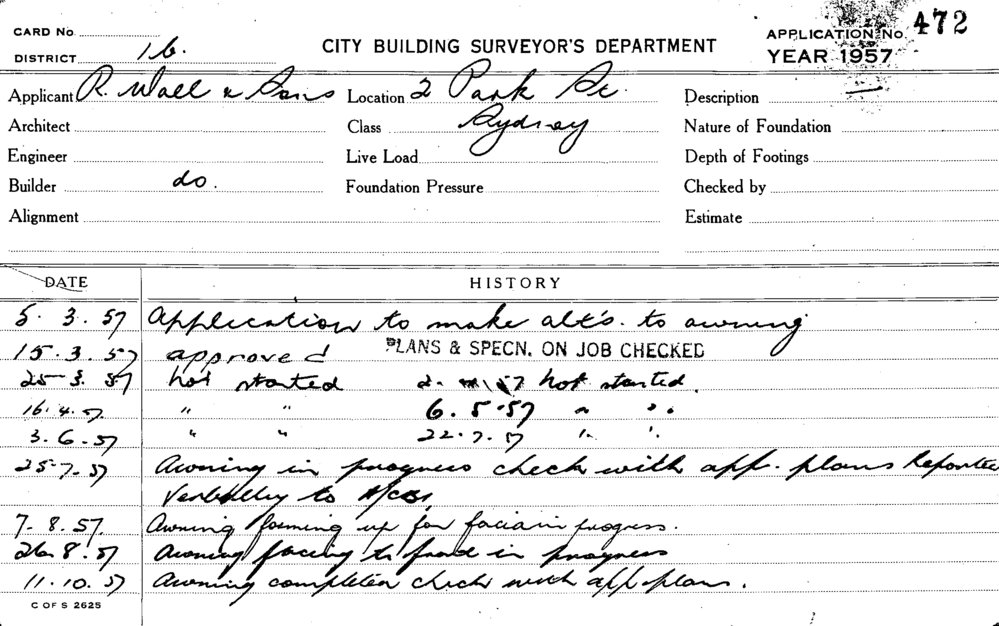 CARD No.
DISTRICT 16.
CITY BUILDING SURVEYOR'S DEPARTMENT
APPLICATION No. 472
YEAR 1957
Applicant R. Wall & Sons Location 2 Park St. Description
Architect Class Sydney Nature of Foundation
Engineer Live Load Depth of Footings
Builder do. Foundation Pressure Checked by
Alignment Estimate
DATE HISTORY
5. 3. 57 Application to make alt's. to awning
15. 3. 57 approved PLANS & SPECN. ON JOB CHECKED
25-3. 57 not started 2. 57 not started.
16.4.57. " " 6. 5. 57 " "
3. 6. 57 " " 22. 7. 57 " "
25-7. 57 Awning in progress check with app. plans Reported
Verballey to
7. 8. 57. Awning forming up for facia in progress.
26. 8. 57 Awning facing to in progress
11. 10. 57 Awning completed check with app. plans.
C OF S 2625